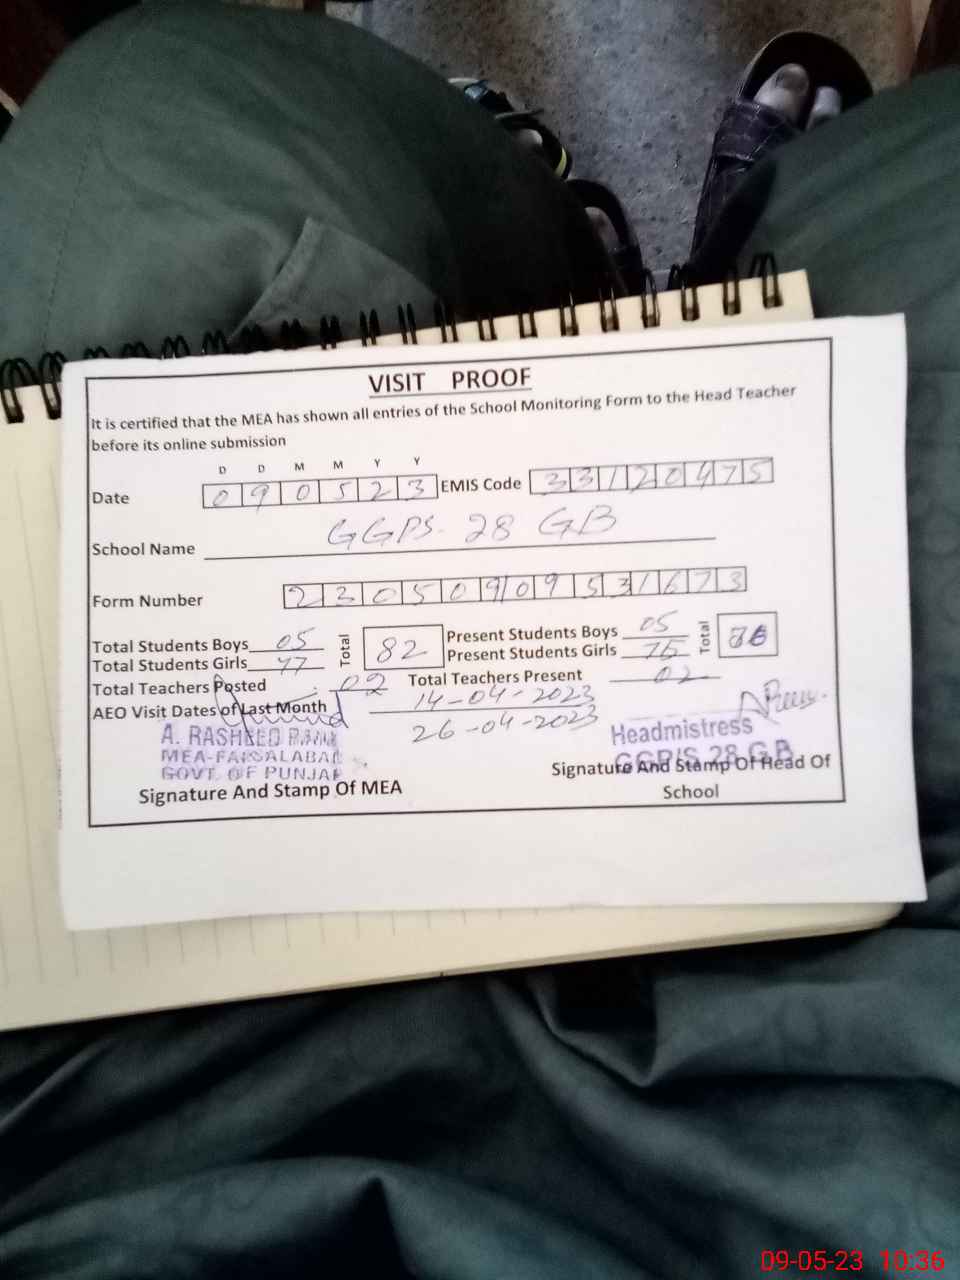 VISIT PROOF
It is certified that the MEA has shown all entries of the School Monitoring Form to the Head Teacher
before its online submission
D D M M Y Y
Date 090523 EMIS Code 33120475
School Name GGPS. 28 GB
Form Number 230509095 31673
Total Students Boys 05 Total 82 Present Students Boys 05 Total
Total Students Girls 77 Present Students Girls
Total Teachers Posted 02 Total Teachers Present 02
AEO Visit Dates of Last Month 14-04-2023
26-04-2023
A. RASHEED
MEA-FAISALABAD
GOVT. OF PUNJAB
Signature And Stamp Of MEA
Headmistress
GGP/S 28 G.B
Signature And Stamp Of Head Of
School
09-05-23 10:36